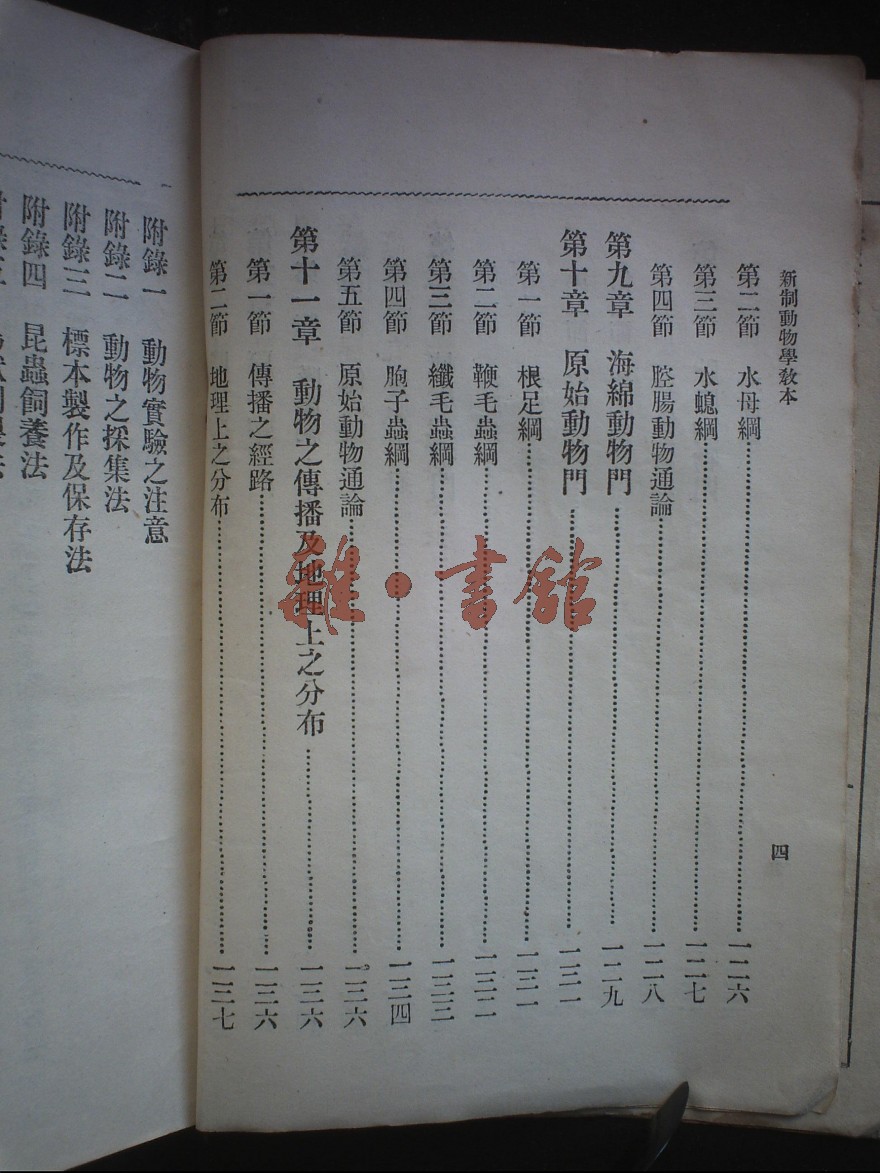 新制動物學教本
四
第二節 水母綱 一二六
第三節 水螅綱 一二七
第四節 腔腸動物通論 一二八
第九章 海綿動物門 一二九
第十章 原始動物門 一三一
第一節 根足綱 一三一
第二節 鞭毛蟲綱 一三二
第三節 纖毛蟲綱 一三三
第四節 胞子蟲綱 一三四
第五節 原始動物通論 一三六
第十一章 動物之傳播及地理上之分布 一三六
第一節 傳播之經路 一三六
第二節 地理上之分布 一三七
附錄一 動物實驗之注意
附錄二 動物之採集法
附錄三 標本製作及保存法
附錄四 昆蟲飼養法
雜·書舘